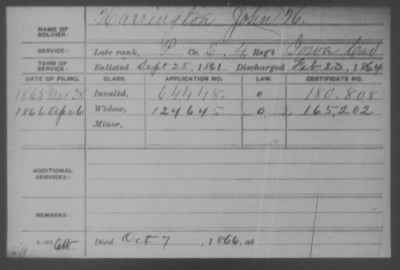 NAME OF SOLDIER: Harrington John H.
SERVICE: Late rank, P Co. E, 4 Reg't Iowa Cav
TERM OF SERVICE: Enlisted Sept 25, 1861 Discharged Feb 23, 1864
DATE OF FILING. CLASS. APPLICATION NO. LAW. CERTIFICATE NO.
1865 Invalid, 64448 0 180.808
1866 Apr 6 Widow, 124645 0 165.202
Minor,
ADDITIONAL SERVICES:
REMARKS:
Died Oct 7, 1866, at